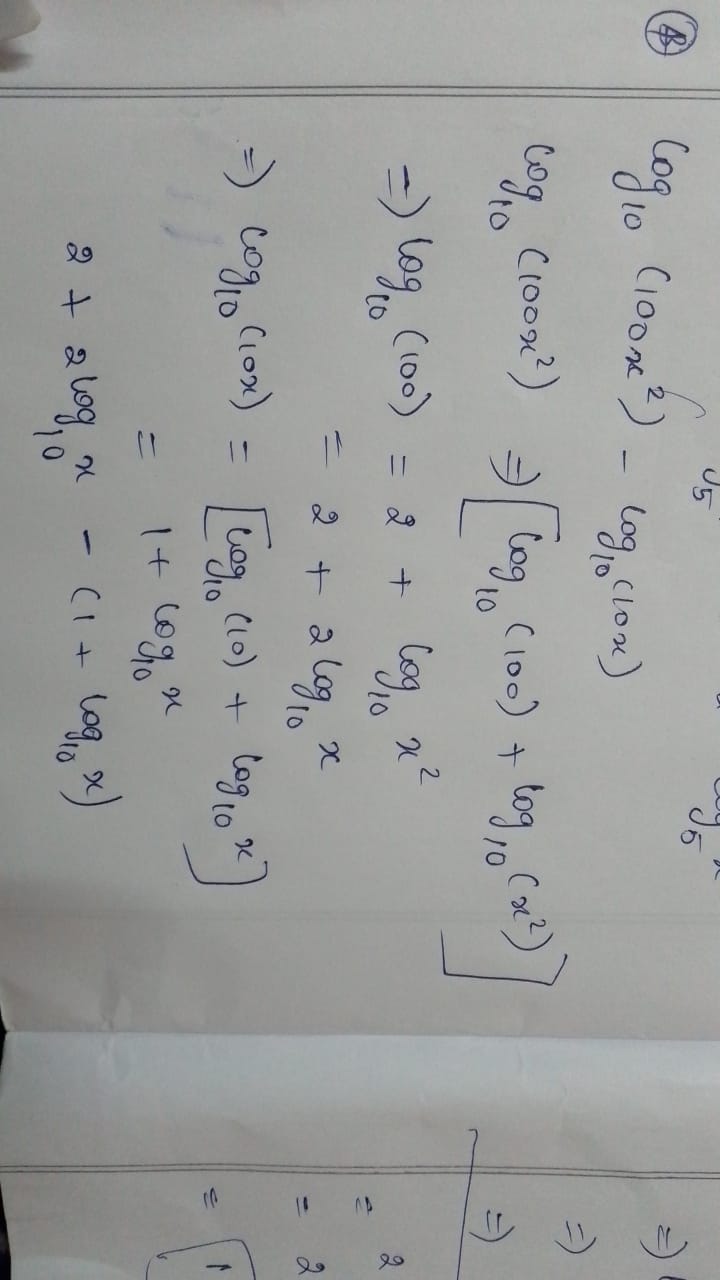 log₁₀ (100x²) - log₁₀ (10x)
log₁₀ (100x²) => [log₁₀ (100) + log₁₀ (x²)]
=) log₁₀ (100) = 2 + log₁₀ x²
= 2 + 2 log₁₀ x
=) log₁₀ (10x) = [log₁₀ (10) + log₁₀ x]
= 1 + log₁₀ x
2 + 2 log₁₀ x - (1 + log₁₀ x)
=)
=)
=)
= 2
= 2
=